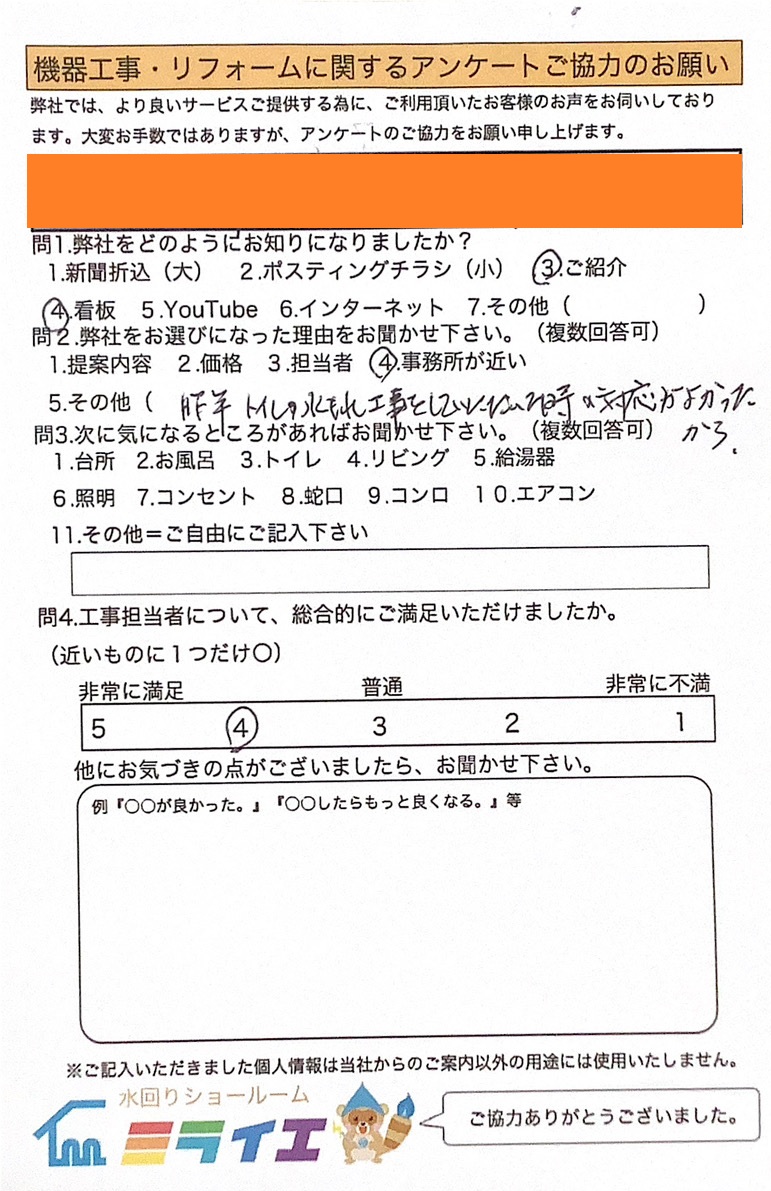 機器工事・リフォームに関するアンケートご協力のお願い
弊社では、より良いサービスご提供する為に、ご利用頂いたお客様のお声をお伺いしており
ます。大変お手数ではありますが、アンケートのご協力をお願い申し上げます。
問1.弊社をどのようにお知りになりましたか？
1.新聞折込（大） 2.ポスティングチラシ（小） 3.ご紹介
4.看板 5.YouTube 6.インターネット 7.その他（ ）
問2.弊社をお選びになった理由をお聞かせ下さい。（複数回答可）
1.提案内容 2.価格 3.担当者 4.事務所が近い
5.その他（ 昨年トイレの水もれ工事をしていただいた時の対応がよかった
から.
問3.次に気になるところがあればお聞かせ下さい。（複数回答可）
1.台所 2.お風呂 3.トイレ 4.リビング 5.給湯器
6.照明 7.コンセント 8.蛇口 9.コンロ 10.エアコン
11.その他＝ご自由にご記入下さい
問4.工事担当者について、総合的にご満足いただけましたか。
（近いものに１つだけ〇）
非常に満足 普通 非常に不満
5 4 3 2 1
他にお気づきの点がございましたら、お聞かせ下さい。
例『〇〇が良かった。』『〇〇したらもっと良くなる。』等
※ご記入いただきました個人情報は当社からのご案内以外の用途には使用いたしません。
水回りショールーム
ミライエ
ご協力ありがとうございました。